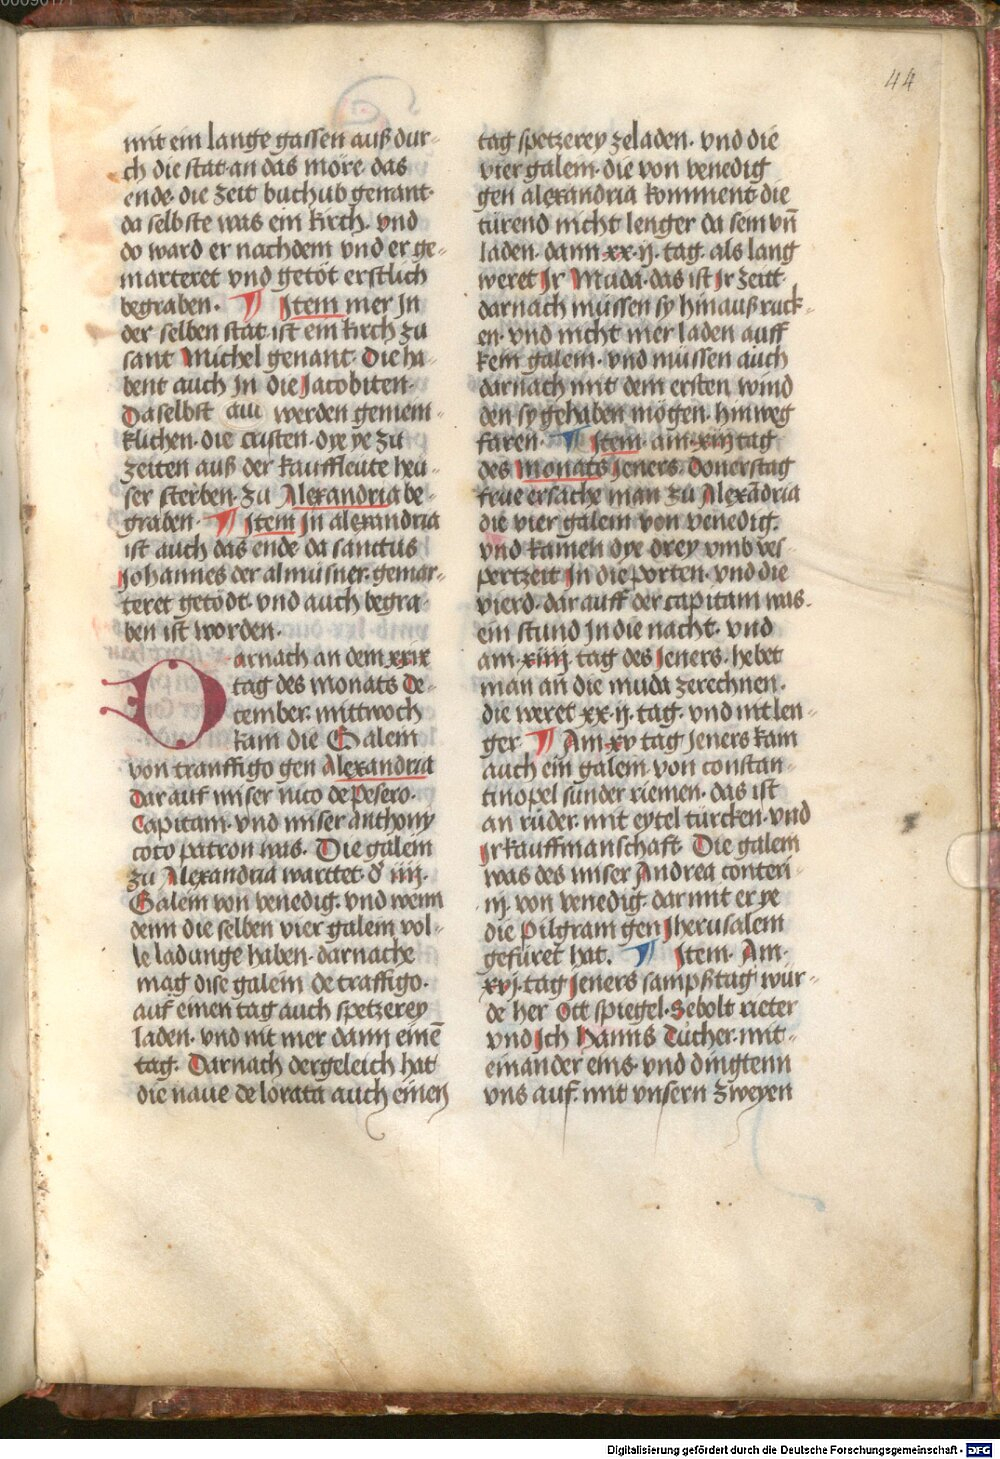 44
mit ein lange gassen auß dur-
ch die stat an das möre· das
ende· die zeit buchub genant·
da selbste was ein kirch· vnd
do ward er nachdem vnd er ge-
marteret vnd getöt erstlich
begraben· ¶ Item mer Jn
der selben stat ist ein kirch zu
sant Michel genant· Die ha-
bent auch Jn die Jacobiten·
Daselbst auu werden gemein-
klichen· die cristen· dye ye zu
zeiten auß der kauffleute heu-
ser sterben· zu Alexandria be-
graben· ¶ Item Jn alexandria
ist auch das ende da sanctus
Johannes der almusner· gemar-
teret getödt· vnd auch begra-
ben ist worden·
Darnach an dem xxix
tag des monats De-
cember· mittwoch
kam die Galein
von traffigo gen Alexandria
Dar auf miser nico de Pesero·
Capitani· vnd miser anthony
coco patron was· Die galein
zu Alexandria warttet· d' iiij·
Galein von venedig· vnd wenn
denn die selben vier galein vol-
le ladunge haben· darnache
mag dise galein de traffigo·
auf einen tag auch spetzerey
laden· vnd nit mer dann einē
tag· Darnach dergeleich hat
die naue de lorata auch einen
tag spetzerey zeladen· vnd die
vier galein· die von venedig
gen alexandria komment· die
türend nicht lenger da sein vn̄
laden· dann· xx· ij· tag· als lang
weret Jr Muda· das ist Jr zeitt·
darnach müssen sy hinauß ruck-
en· vnd nicht mer laden auff
kein galein· vnd müssen auch
darnach mit dem ersten wind
den sy gehaben mögen· hinweg
faren· ¶ Item· am· xiij tag
des monats Jeners· Donerstag
frue ersache man zu Alexādria
die vier galein von venedig·
vnd kamen dye drey vmb ves-
pertzeit Jn die porten· vnd die
vierd· dar auff der capitani was·
ein stund Jn die nacht· vnd
am· xiiij· tag des Jeners· hebet
man an die muda zerechnen·
die weret· xx· ij· tag· vnd nit len-
ger· ¶ Am· xv tag Jeners kam
auch ein galein von constan-
tinopel sunder riemen· das ist
an rüder· mit eytel türcken· vnd
Jr kauffmanschaft· Die galein
was des miser Andrea conteri-
nj· von venedig· dar mit er ye
die Pilgram gen Jherusalem
gefüret hat· ¶ Item· Am·
xvj· tag Jeners sampßtag wur-
de her Ott spiegel· Sebolt rieter
vnd Ich Hanns Tücher· mit-
einander eins· vnd dingtenn
vns auf· mit vnsern zweyen
Digitalisierung gefördert durch die Deutsche Forschungsgemeinschaft - DFG